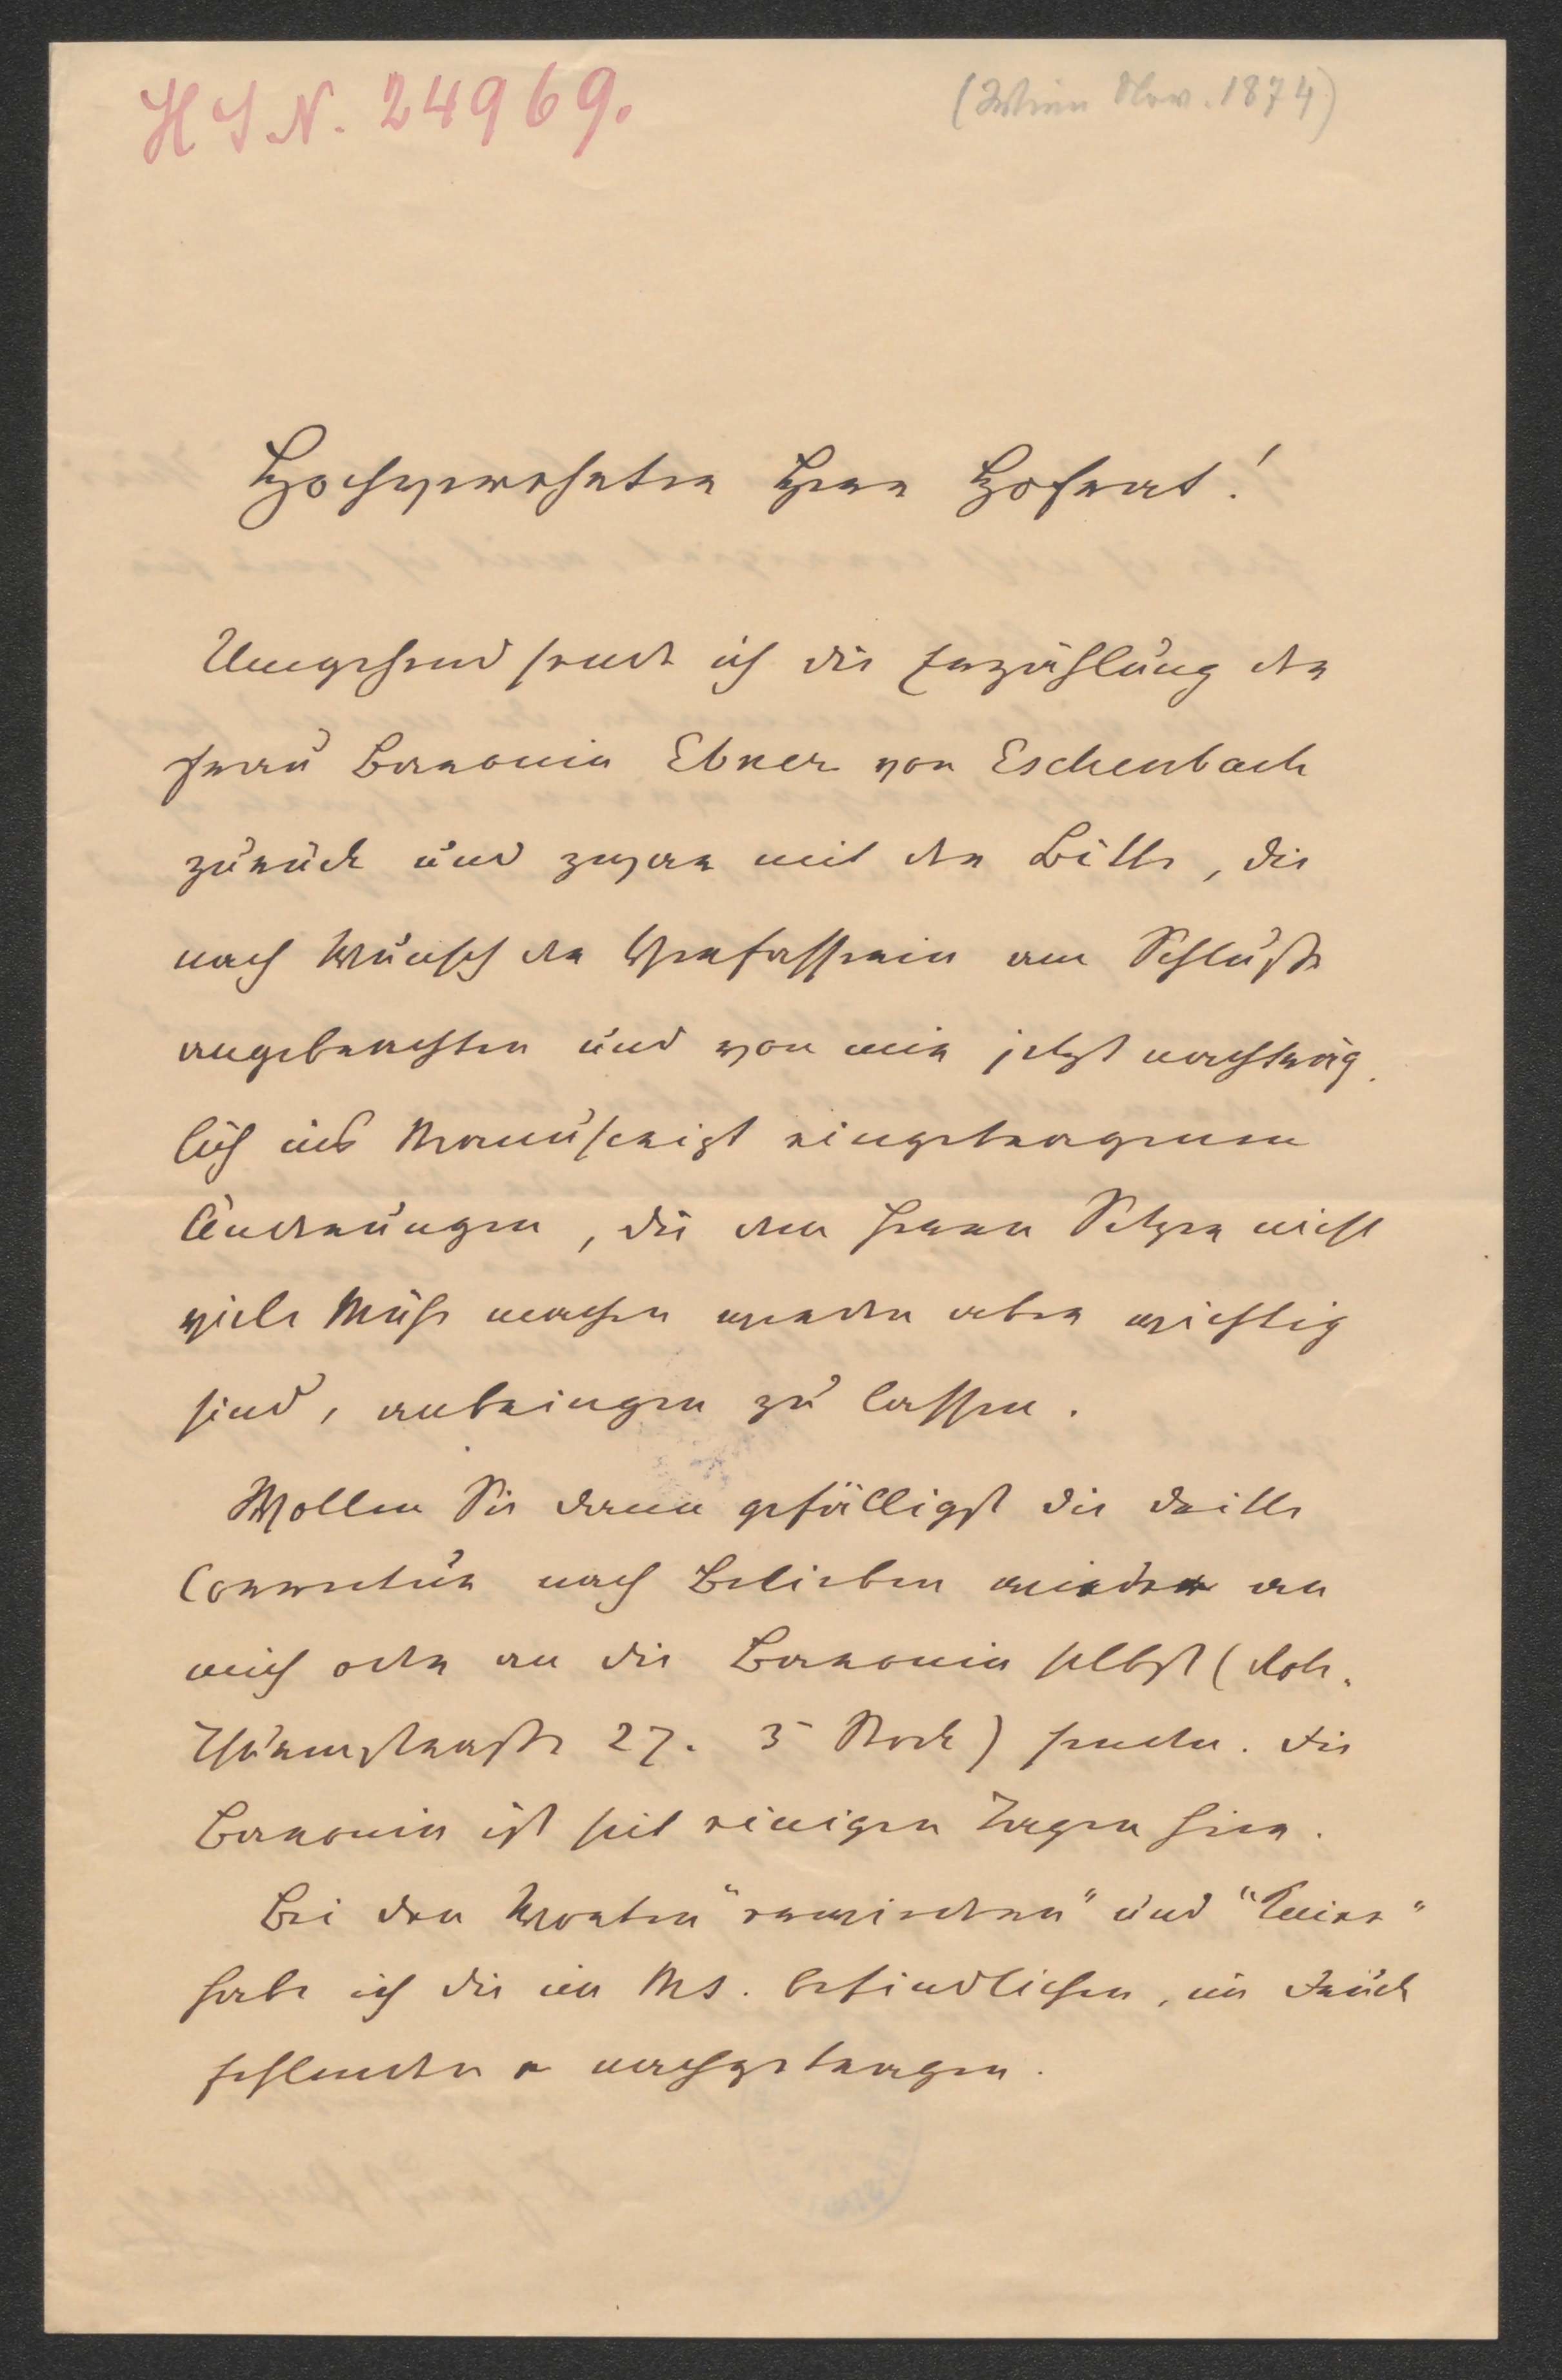 HSN. 24969.
(Wien Nov. 1874)
Hochverehrter Herr Hofrat!
Umgehend sende ich die Erzählung der
Frau Baronin Ebner von Eschenbach
zurück und zwar mit der Bitte, die
nach Wunsch der Verfasserin am Schluße
angebrachten und von mir jetzt nachträg-
lich ins Manuscript eingetragenen
Änderungen, die dem Herrn Setzer nicht
viele Mühe machen werden aber wichtig
sind, anbringen zu lassen.
Wollen Sie dann gefälligst die dritte
Correctur nach Belieben wieder an
mich oder an die Baronin selbst (Roth-
Thurmstraße 27. 3 Stock) senden. Die
Baronin ist seit einigen Tagen hier.
Bei den Worten "erwiedern" und
habe ich die im Ms. befindlichen, im Druck
fehlenden e nachgetragen.